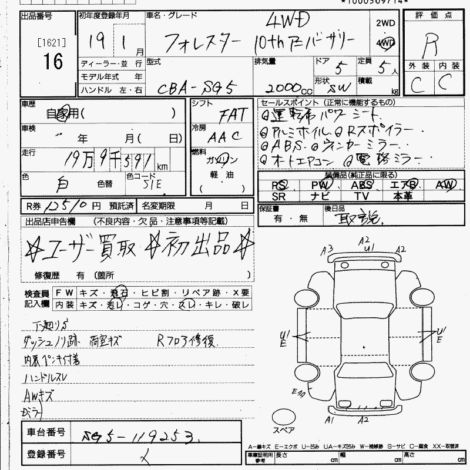 *1000569714*
出品番号
[1621]
16
初年度登録年月
19年1月
ディーラー・並行
モデル年式 年
ハンドル 左・右
車名・グレード
4WD
フォレスター 10thアニバーサリー
2WD
4WD
評価点
R
外装 内装
C C
型式
CBA-SG5
排気量
2000cc
ドア
5
形状
SW
定員
5人
積載
kg
車歴
自家用( )
車検
年 月( 日)
走行
19万9千591km
色
白
色替
色No.
51E
シフト
FAT
冷房
AAC
燃料
ガソリン
軽油
( )
セールスポイント(正常に機能するもの)
◎運転席パワーシート
◎アルミホイル ◎Rスポイラー
◎ABS ◎ウィンカーミラー
◎オートエアコン ◎電格ミラー
装備品(純正品に限る)
PS PW ABS エアB AW
SR ナビ TV 本革
R券 12510円 預託済
名変期限 月 日
保証書
有・無
後日品
取説
出品店申告欄 (不良内容・欠品・注意事項等記載)
☆ユーザー買取 ☆初出品
修復歴 有(箇所 )
検査員記入欄
FW キズ・飛石・ヒビ割・リペア跡・X要
内装 キズ・汚レ・コゲ・穴・スレ・キレ・破レ
下廻りサビ
ダッシュノリ跡 荷室キズ Rフロア修復
内装ペンキ付着
ハンドルスレ
AWキズ
車台番号
SG5-119253
登録番号
A3 A2 U1
A2
U1
E
U1
E
A1 A2
スペア
A-線キズ E-エクボ U-凹み UA-キズ凹み W-補修跡 S-サビ C-腐食 XX-取替済
車検証明用参考
長さ cm
幅 cm
高さ cm